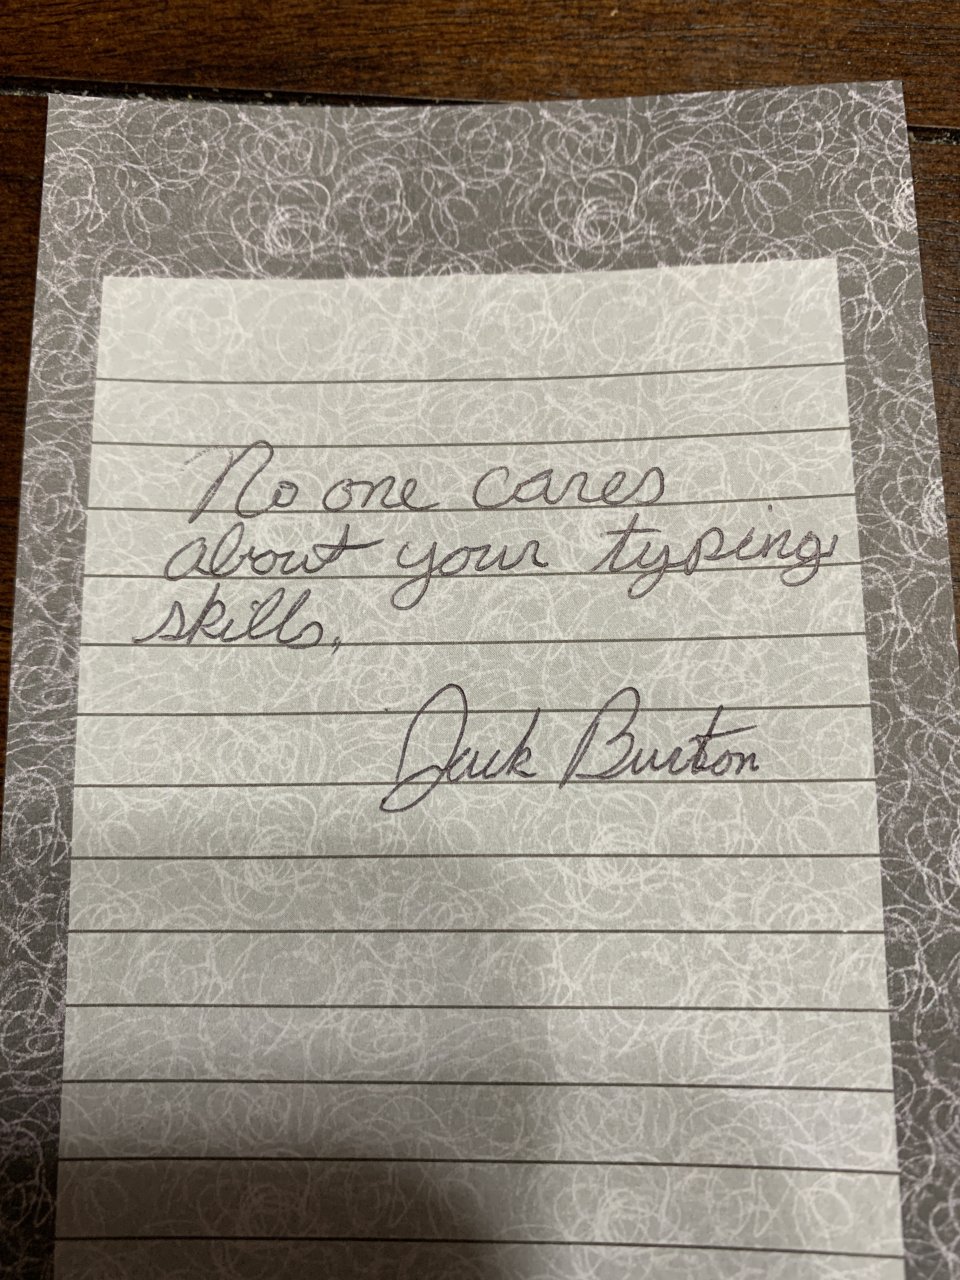 No one cares
about your typing
skills,
Jack Burton